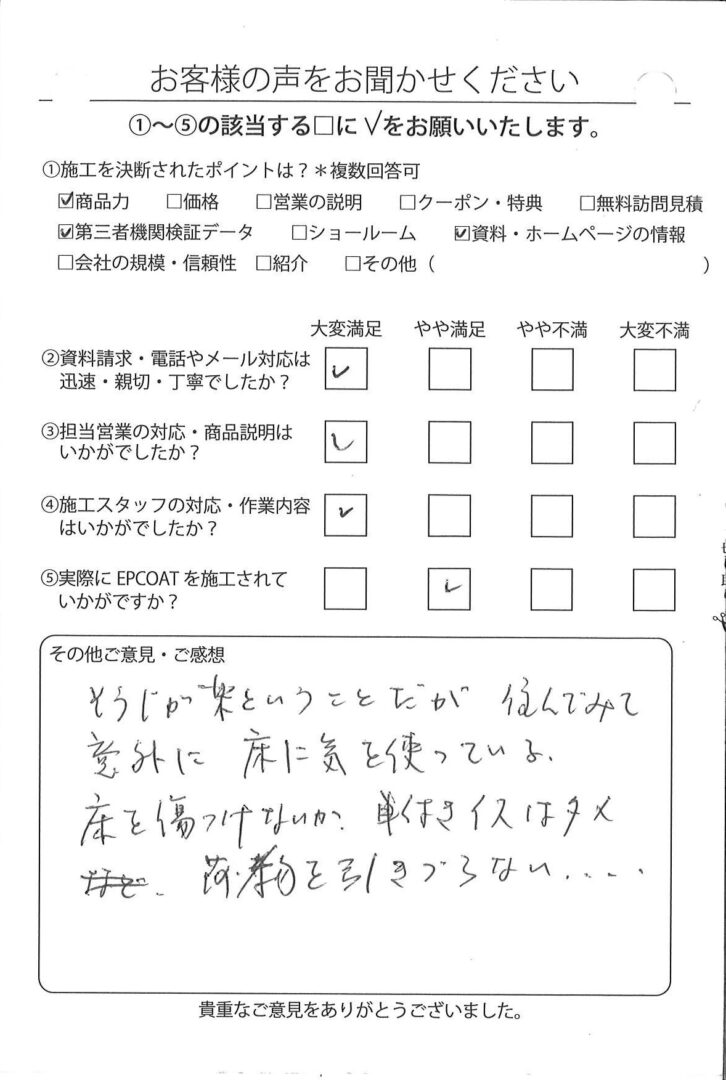 お客様の声をお聞かせください
①～⑤の該当する□に√をお願いいたします。
①施工を決断されたポイントは？＊複数回答可
☑商品力 □価格 □営業の説明 □クーポン・特典 □無料訪問見積
☑第三者機関検証データ □ショールーム ☑資料・ホームページの情報
□会社の規模・信頼性 □紹介 □その他（ ）
大変満足 やや満足 やや不満 大変不満
②資料請求・電話やメール対応は
迅速・親切・丁寧でしたか？
③担当営業の対応・商品説明は
いかがでしたか？
④施工スタッフの対応・作業内容
はいかがでしたか？
⑤実際に EPCOAT を施工されて
いかがですか？
その他ご意見・ご感想
そうじが楽ということだが 住んでみて
意外に 床に気を使っている、
床を傷つけないか、車付きイスはダメ
荷物を引きづらない、....
貴重なご意見をありがとうございました。